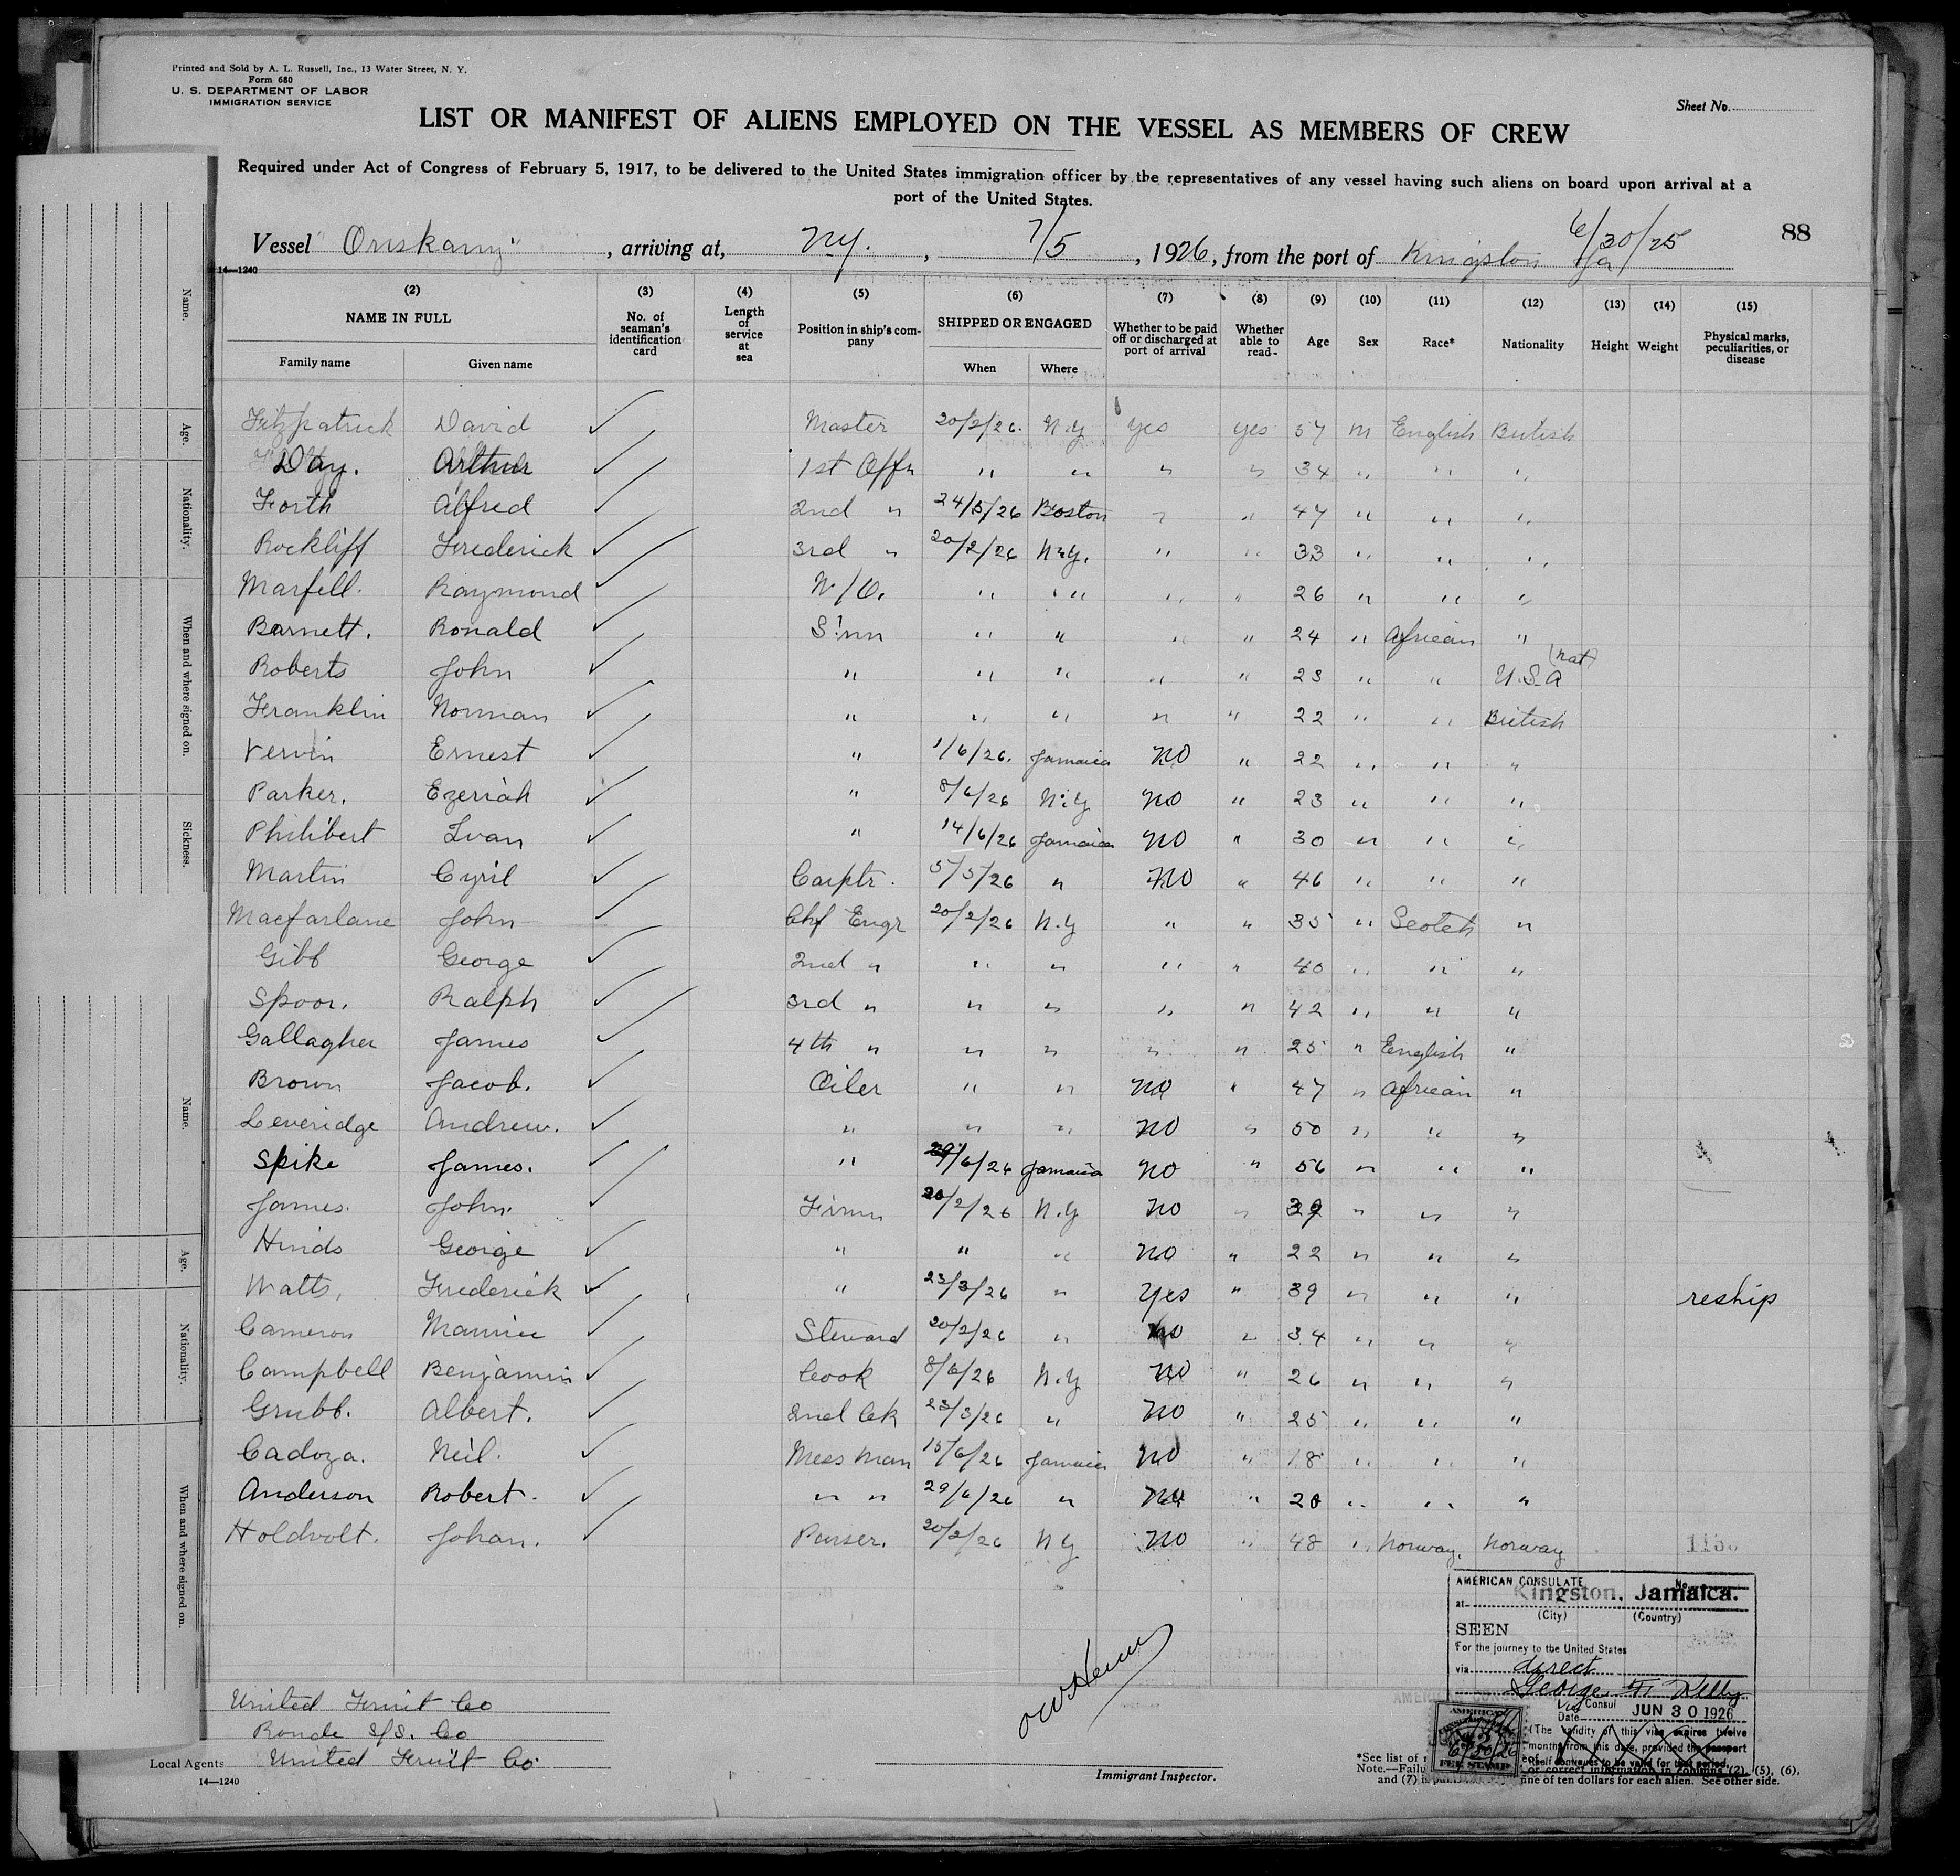 Printed and Sold by A. L. Russell, Inc., 13 Water Street, N. Y.
Form 680
U. S. DEPARTMENT OF LABOR
IMMIGRATION SERVICE
Sheet No.
LIST OR MANIFEST OF ALIENS EMPLOYED ON THE VESSEL AS MEMBERS OF CREW
Required under Act of Congress of February 5, 1917, to be delivered to the United States immigration officer by the representatives of any vessel having such aliens on board upon arrival at a
port of the United States.
88
Vessel "Oriskany", arriving at, N.Y., 7/5, 1926, from the port of Kingston Ja 6/30/25
14—1240
(2) (3) (4) (5) (6) (7) (8) (9) (10) (11) (12) (13) (14) (15)
NAME IN FULL No. of seaman's identification card Length of service at sea Position in ship's company SHIPPED OR ENGAGED Whether to be paid off or discharged at port of arrival Whether able to read- Age Sex Race* Nationality Height Weight Physical marks, peculiarities, or disease
Family name Given name When Where
Fitzpatrick David ✓ Master 20/2/26. N.Y yes yes 57 m English British
Day. Arthur ✓ 1st Offr " " " " 34 " " "
Forth Alfred ✓ 2nd " 24/5/26 Boston " " 47 " " "
Rockliff Frederick ✓ 3rd " 20/2/26 N.Y. " " 33 " " "
Marfell. Raymond ✓ W/O. " " " " 26 " " "
Barnett. Ronald ✓ S'mn " " " " 24 " African "
Roberts John ✓ " " " " " 23 " " U.S.A (nat)
Franklin Norman ✓ " " " " " 22 " " British
Vervin Ernest ✓ " 1/6/26. Jamaica no " 22 " " "
Parker. Ezeriah ✓ " 8/6/26 N.Y no " 23 " " "
Philibert Ivan ✓ " 14/6/26 Jamaica no " 30 " " "
Martin Cyril ✓ Carptr. 5/5/26 " no " 46 " " "
Macfarlane John ✓ Chf Engr 20/2/26 N.Y " " 35 " Scotch "
Gibb George ✓ 2nd " " " " " 40 " " "
Spoor. Ralph ✓ 3rd " " " " " 42 " " "
Gallagher James ✓ 4th " " " " " 25 " English "
Brown Jacob. ✓ Oiler " " no " 47 " African "
Leveridge Andrew. ✓ " " " no " 50 " " "
Spike James. ✓ " 29/6/26 Jamaica no " 56 " " "
James. John. ✓ Firmn 20/2/26 N.Y no " 39 " " "
Hinds George ✓ " " " no " 22 " " "
Watts, Frederick ✓ " 23/3/26 " yes " 39 " " " reship
Cameron Maurice ✓ Steward 20/2/26 " no " 34 " " "
Campbell Benjamin ✓ Cook 8/6/26 N.Y no " 26 " " "
Grubb. Albert. ✓ 2nd Ck 23/3/26 " no " 25 " " "
Cadoza. Neil. ✓ Mess man 15/6/26 Jamaica no " 18 " " "
Anderson Robert. ✓ " " 29/6/26 " no " 20 " " "
Holdvolt. Johan. ✓ Purser. 20/2/26 N.Y no " 48 " Norway. Norway
AMERICAN CONSULATE No.
at Kingston, Jamaica.
(City) (Country)
SEEN
For the journey to the United States
via direct
Vice Consul
Date JUN 30 1926
(The validity of this visa expires twelve
months from this date, provided the passport
itself continues to be valid for that period.
AMERICAN
FEE STAMP
6/30/26
United Fruit Co
Ronde S/S. Co
Local Agents United Fruit Co.
14—1240
Immigrant Inspector.
*See list of
Note.—Failu or correct information in columns (2), (5), (6),
and (7) is ne of ten dollars for each alien. See other side.
Name.
Age.
Nationality.
When and where signed on.
Sickness.
Name.
Age.
Nationality.
When and where signed on.